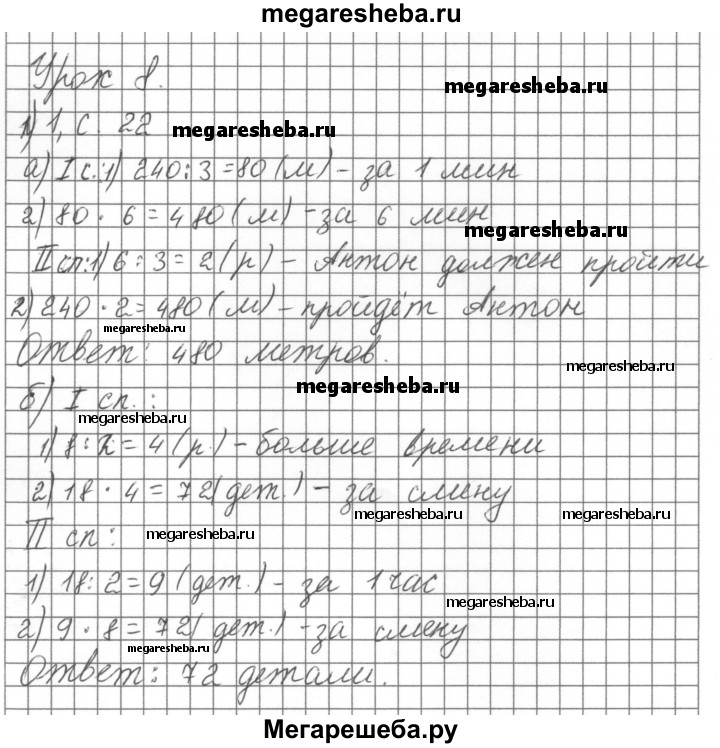 megaresheba.ru
Урок 8.
megaresheba.ru
1) 1, с. 22 megaresheba.ru
а) I с.:1) 240:3=80 (м) - за 1 мин
2) 80 · 6 = 480 (м) - за 6 мин
megaresheba.ru
II сп:1) 6 : 3 = 2 (р) - Антон должен пройти
2) 240 · 2 = 480 (м) - пройдёт Антон
megaresheba.ru
Ответ: 480 метров.
megaresheba.ru
megaresheba.ru
б) I сп. :
megaresheba.ru
1) 8 : 2 = 4 (р.) - больше времени
2) 18 · 4 = 72 (дет.) - за смену
megaresheba.ru megaresheba.ru
II сп: megaresheba.ru
1) 18 : 2 = 9 (дет.) - за 1 час
megaresheba.ru
2) 9 · 8 = 72 (дет.) - за смену
megaresheba.ru
Ответ: 72 детали.
Мегарешеба.ру